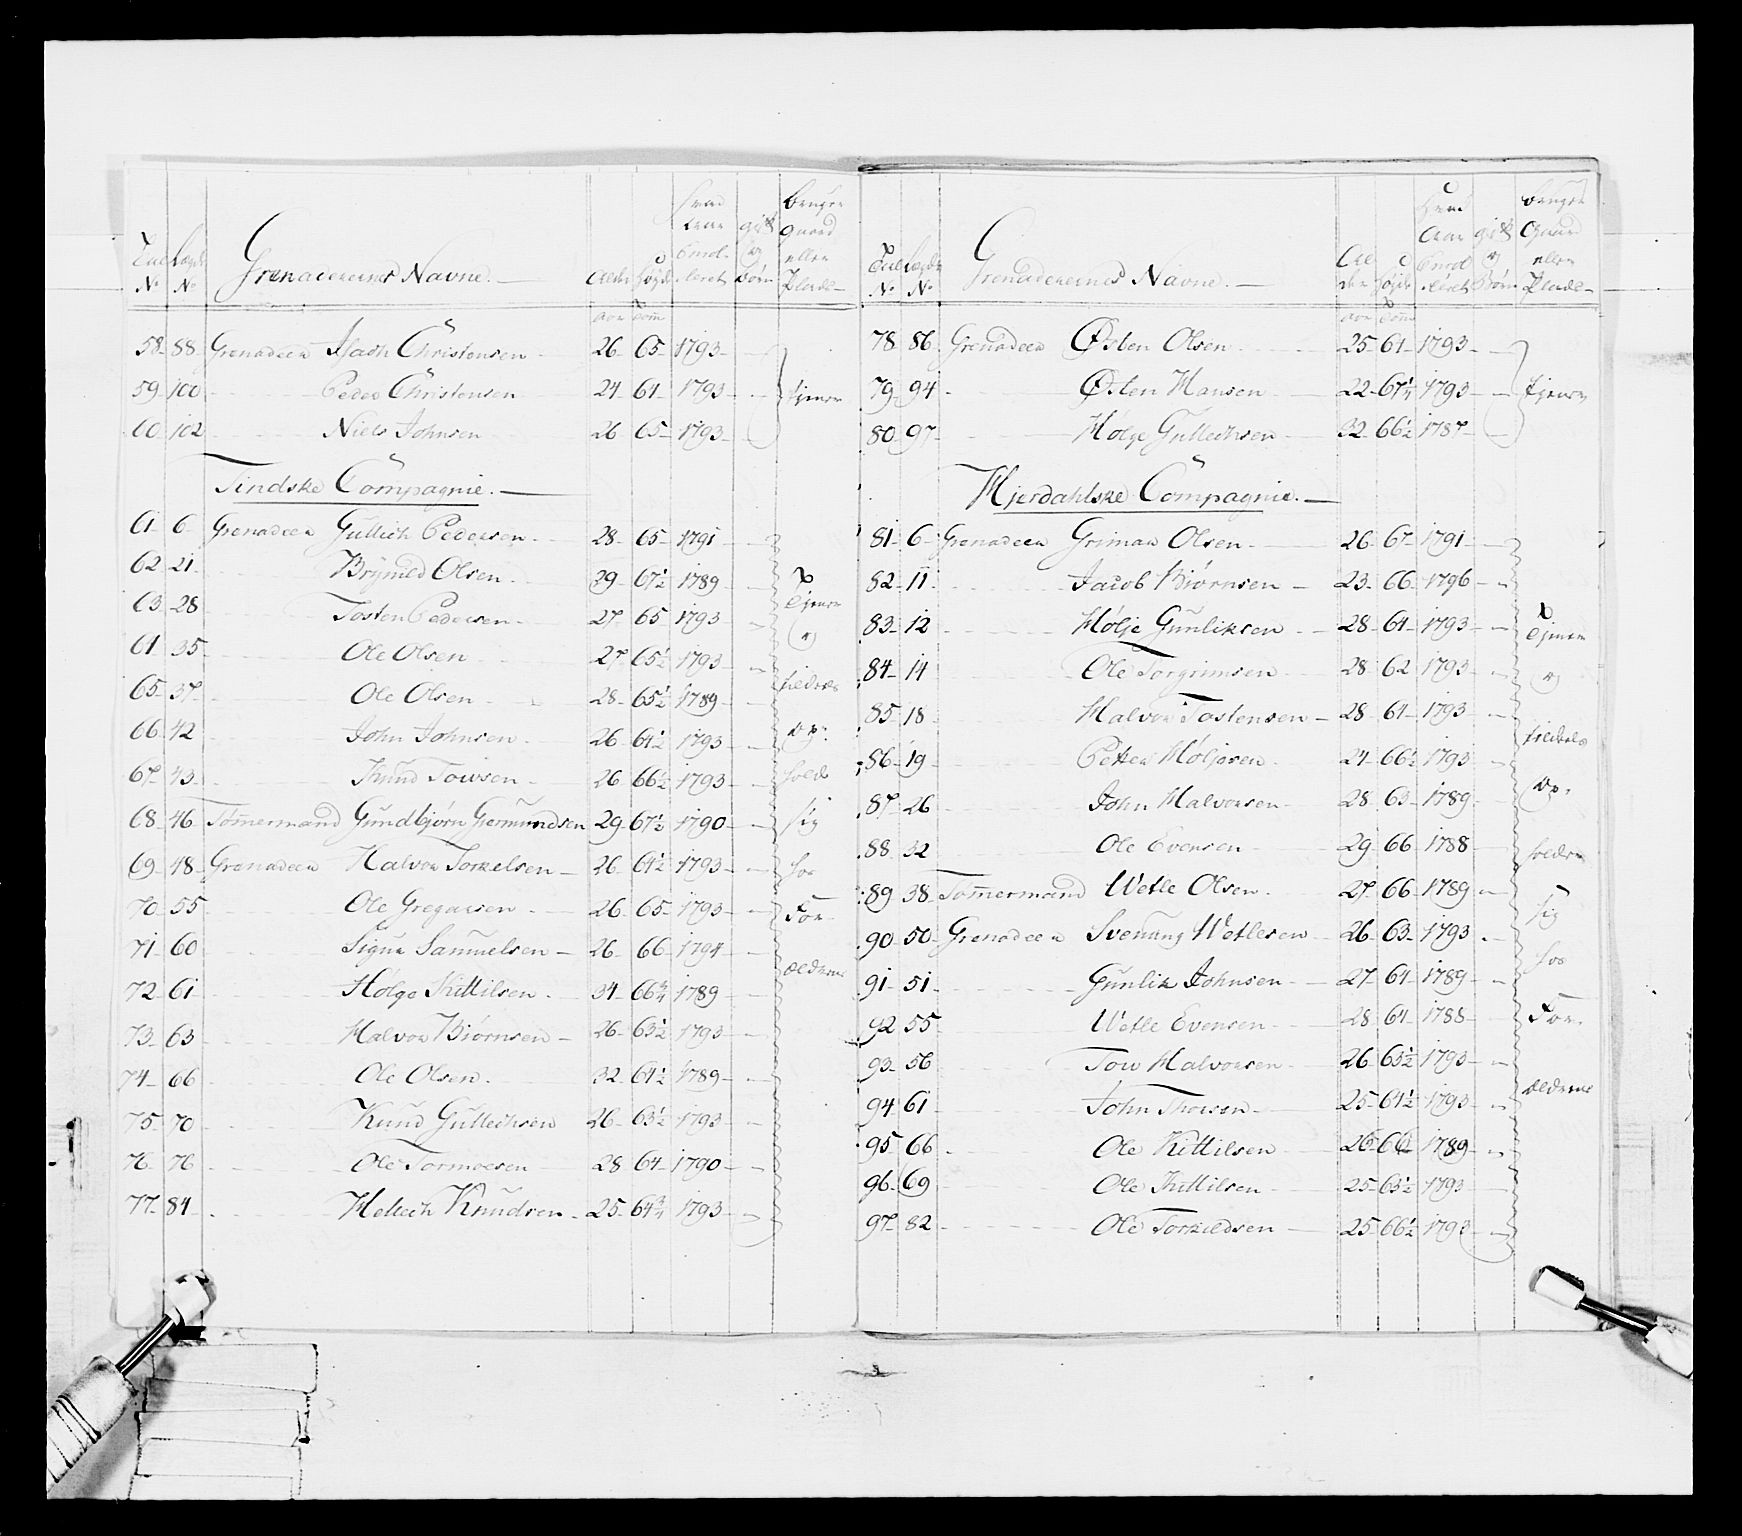 Tal N° Lægds N° Grenaderernes Navne. Alder Høyde hvad Aar Enrol- leret gift og Børn bruger Gaard eller Pladz
Aar Tom̄
58 88 Grenadeer Isach Christensen 26 65 1793
59 100 Peder Christensen 24 64 1793 tjener
60 102 Niels Johnsen 26 65 1793
Tindske Compagnie.
61 6 Grenadeer Gullich Pedersen 28 65 1791
62 21 Brÿnild Olsen 29 67½ 1789
63 28 Tosten Pedersen 27 65 1793
64 35 Ole Olsen 27 65½ 1793
65 37 Ole Olsen 28 65½ 1789
66 42 John Johnsen 26 64½ 1793
67 43 Knud Tovsen 26 66½ 1793
68 46 Tømmermand Gundbjørn Giermundsen 29 67½ 1790
69 48 Grenadeer Halvor Torkelsen 26 64½ 1793
70 55 Ole Gregarsen 26 65 1793
71 60 Sigur Samuelsen 26 66 1794
72 61 Hølge Kittilsen 34 66¾ 1789
73 63 Halvor Biørnsen 26 63½ 1793
74 66 Ole Olsen 32 64½ 1789
75 70 Knud Gullichsen 26 63½ 1793
76 76 Ole Tormoesen 28 64 1790
77 84 Hellech Knudsen 25 64¾ 1793
Tjener og tildeels op- hold sig hos For- ældrene
Tal N° Lægds N° Grenaderernes Navne. Al- der Høyde hvad Aar Enrol- leret gift og Børn bruger Gaard eller Pladz
Aar Tom̄
78 86 Grenadeer Østen Olsen 25 61 1793
79 94 Østen Hansen 22 67¼ 1793 tjener
80 97 Hølge Gullechsen 32 66½ 1787
Hjerdahlske Compagnie.
81 6 Grenadeer Grimar Olsen 26 67 1791
82 11 Jacob Biørnsen 23 66 1796
83 12 Hølje Gunliksen 28 64 1793
84 14 Ole Torgrimsen 28 62 1793
85 18 Halvor Tostensen 28 61 1793
86 19 Petter Høljesen 24 66½ 1793
87 26 John Halvorsen 28 63 1789
88 32 Ole Evensen 29 66 1788
89 38 Tømmermand Wetle Olsen 27 66 1789
90 50 Grenadeer Svenung Wetlesen 26 63 1793
91 51 Gunlik Johnsen 27 64 1789
92 55 Wetle Evensen 28 64 1788
93 56 Tov Halvorsen 26 63½ 1793
94 61 John Thovsen 25 61½ 1793
95 66 Ole Kittilsen 26 66½ 1789
96 69 Ole Kittilsen 25 63½ 1793
97 82 Ole Torkildsen 25 66½ 1793
Tjener og tildeels op- holder sig hos For- ældrene